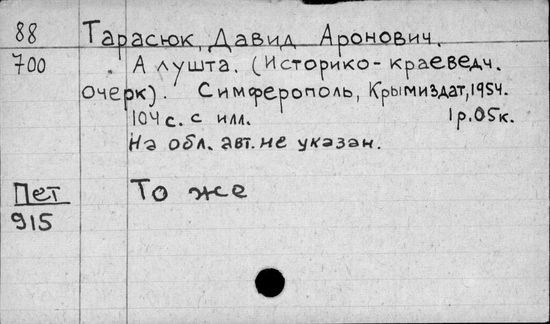 88 Тарасюк, Давид Аронович.
700 Алушта. (Историко-краеведч.
очерк). Симферополь, Крымиздат, 1954.
104 с. с илл. 1 р. 05 к.
На обл. авт. не указан.
Пет То же
915